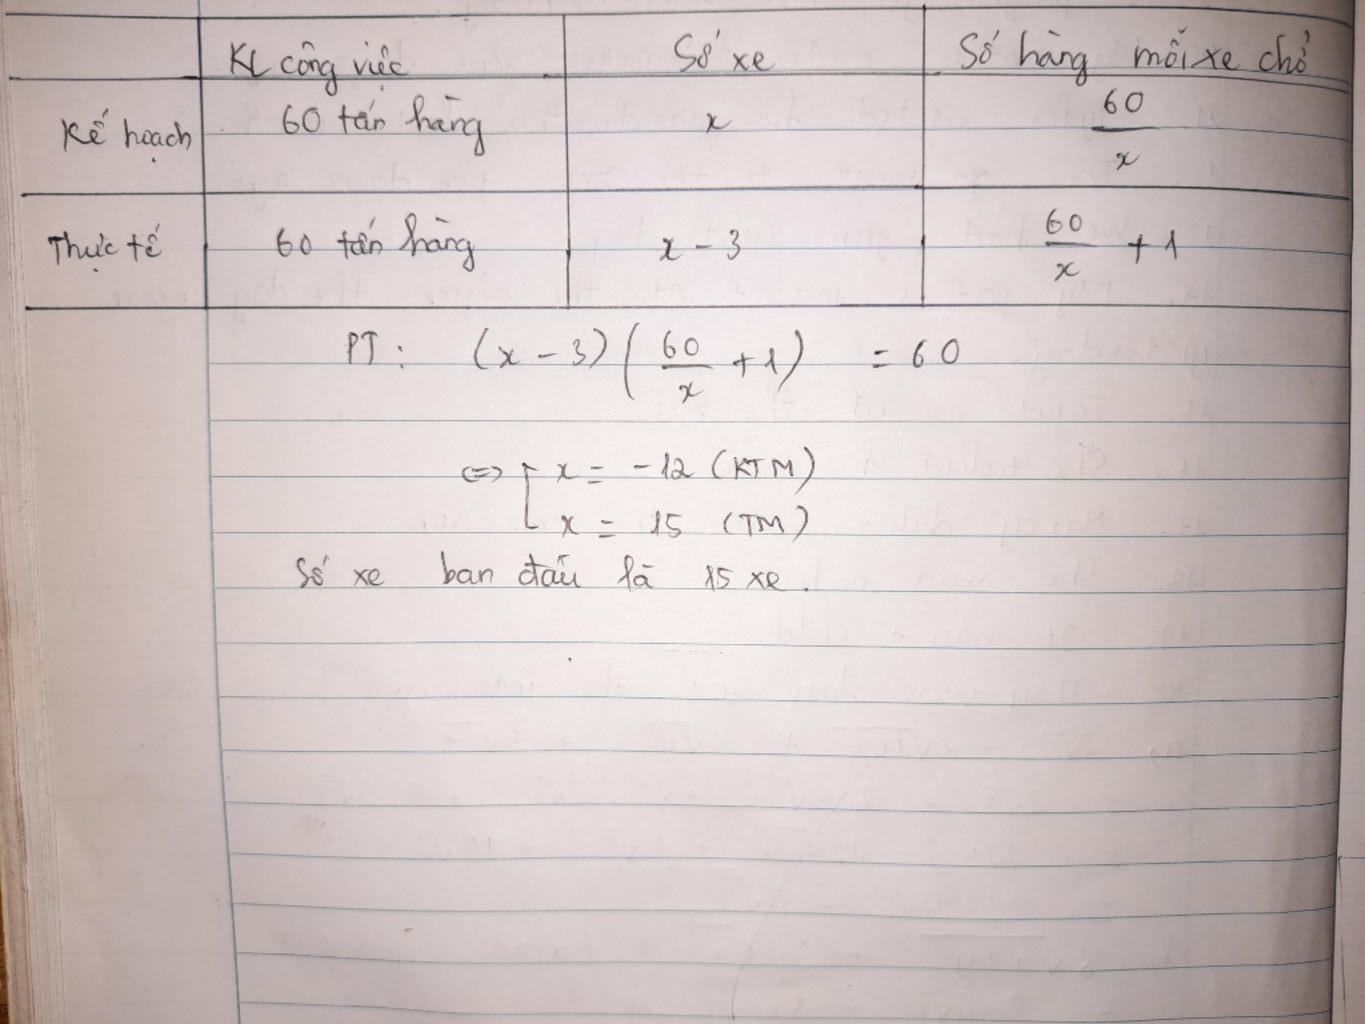 KL công việc Số xe Số hàng mỗi xe chở
Kế hoạch 60 tấn hàng x 60/x
Thực tế 60 tấn hàng x - 3 60/x + 1
PT: (x - 3)(60/x + 1) = 60
⇔ [ x = -12 (KTM)
x = 15 (TM)
Số xe ban đầu là 15 xe.